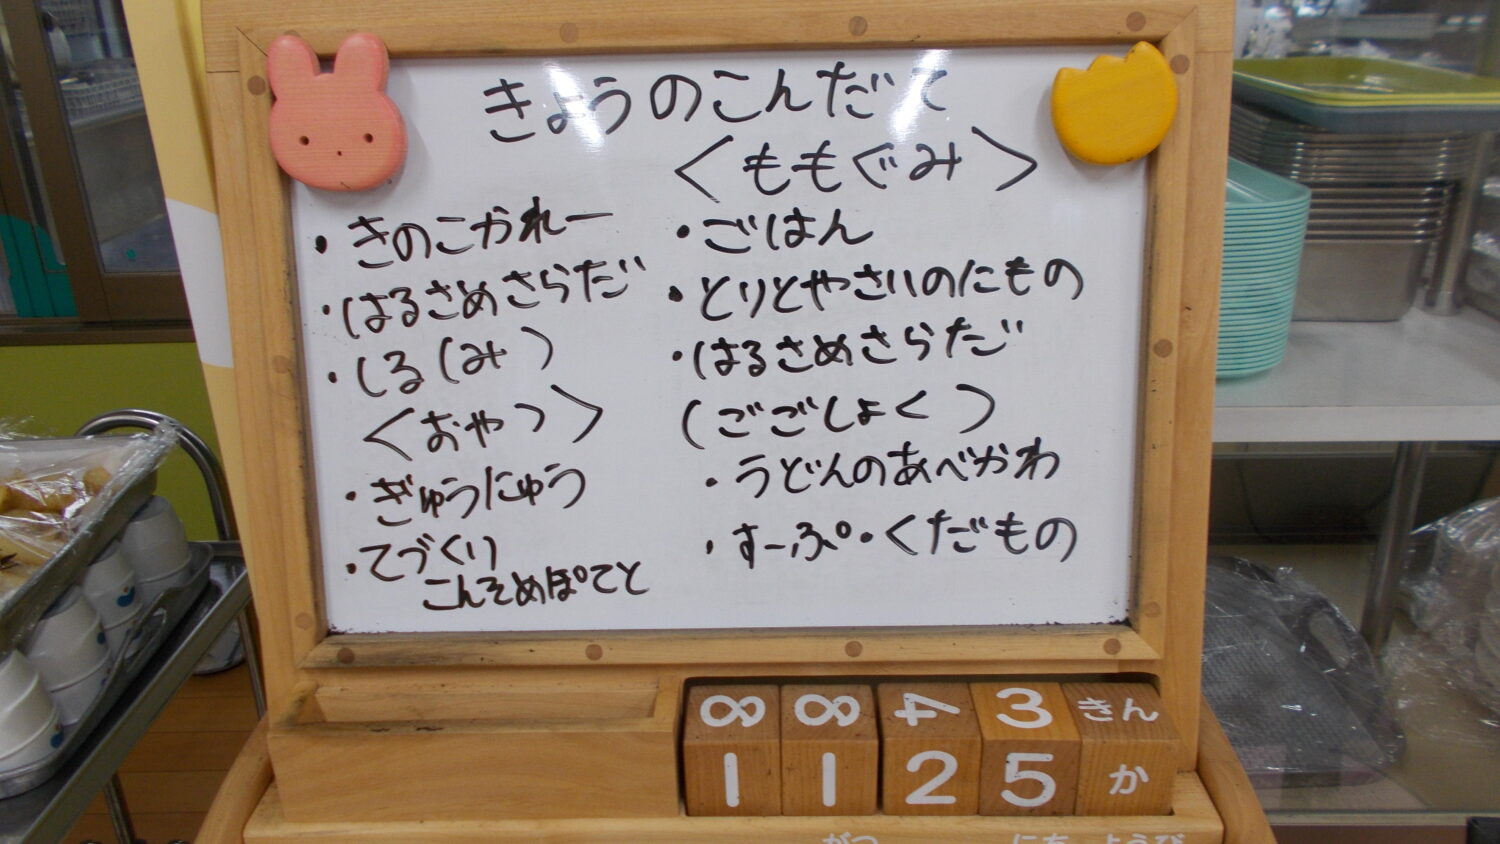 きょうのこんだて
・きのこかれー
・はるさめさらだ
・しる(み )
<おやつ>
・ぎゅうにゅう
・てづくり
こんそめぽてと
<ももぐみ>
・ごはん
・とりとやさいのにもの
・はるさめさらだ
(ごごしょく)
・うどんのあべかわ
・すーぷ・くだもの
8 8 4 3 きん
1 1 2 5 か
がつ にち ようび